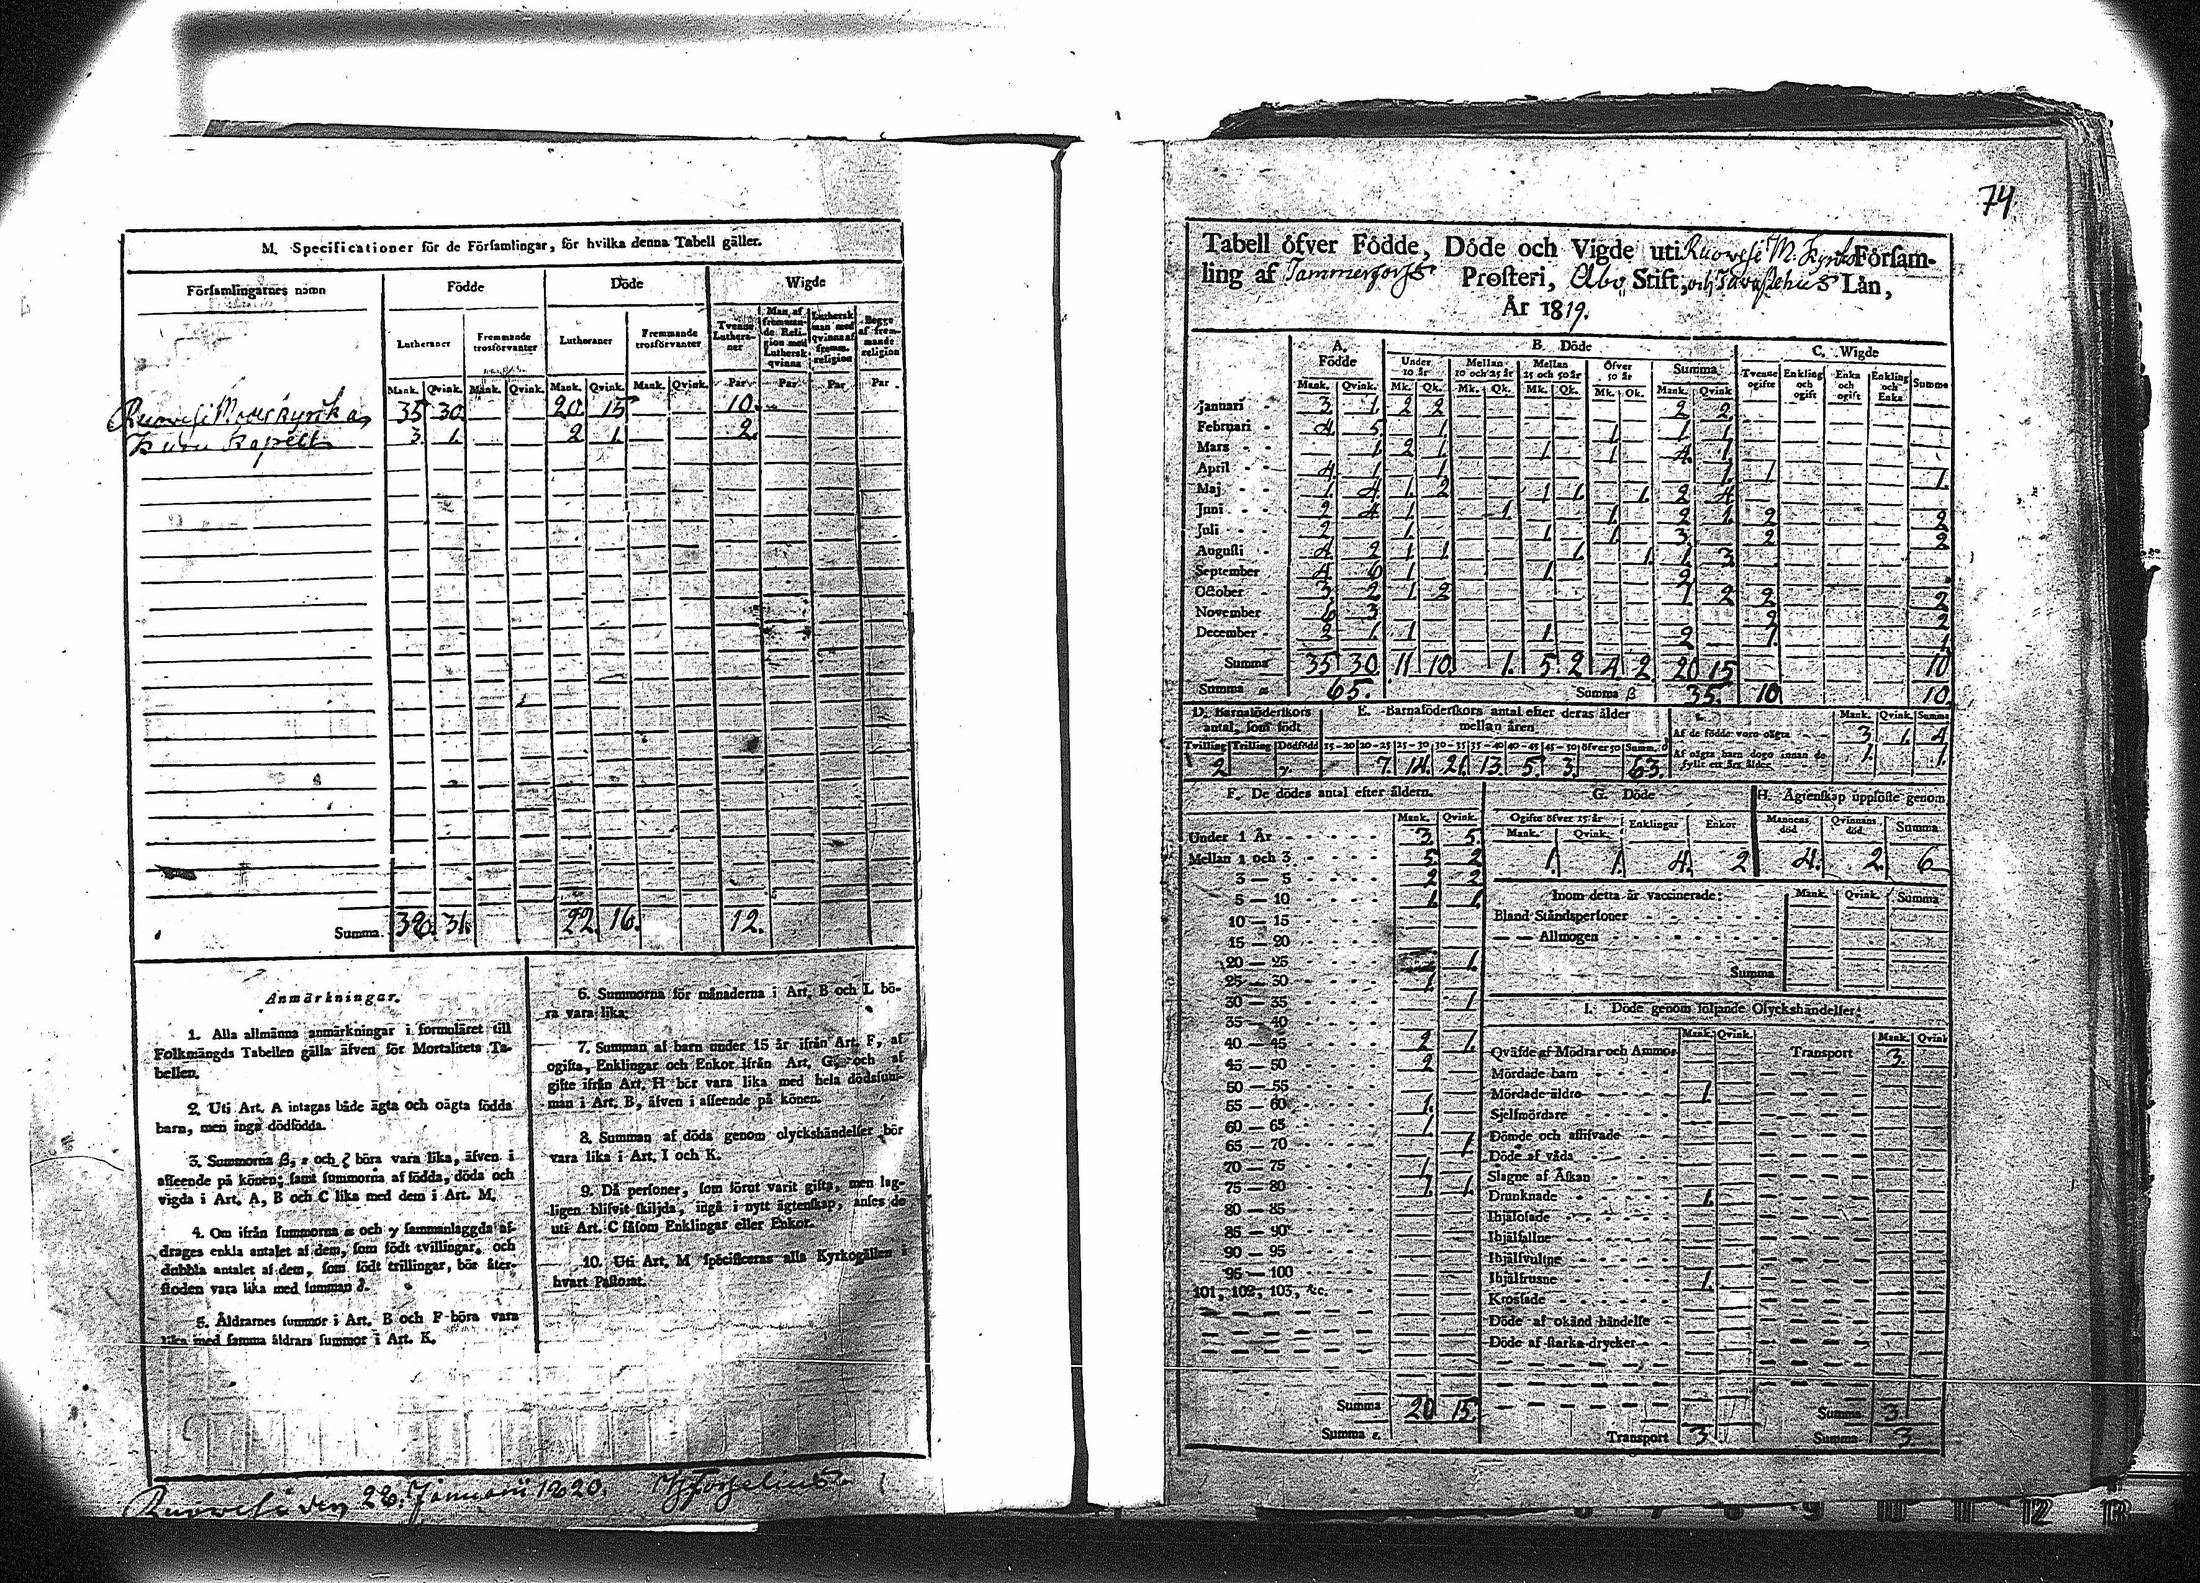 M. Specificationer för de Församlingar, för hvilka denna Tabell gäller.
Församlingarnes namn Födde Döde Wigde
Lutheraner Fremmande trosförvanter Lutheraner Fremmande trosförvanter Tvenne Lutheraner Man af fremmande Religion med Luthersk qvinna Luthersk man med qvinna af fremm. religion Begge af fremmande religion
Mank. Qvink. Mank. Qvink. Mank. Qvink. Mank. Qvink. Par Par Par Par
Ruovesi Moderkyrka 35 30 20 15 10.
Kapell 3. 1. 2 1. 2.
Summa 38. 31. 22. 16. 12.
Anmärkningar.
1. Alla allmänna anmärkningar i formuläret till
Folkmängds Tabellen gälla äfven för Mortalitets Ta-
bellen.
2. Uti Art. A intagas både ägta och oägta födda
barn, men inga dödfödda.
3. Summorna β, ε och ζ böra vara lika, äfven i
afseende på könen; samt summorna af födda, döda och
vigda i Art. A, B och C lika med dem i Art. M.
4. Om ifrån summorna α och γ sammanlaggda af-
drages enkla antalet af dem, som födt tvillingar, och
dubbla antalet af dem, som födt trillingar, bör åter-
stoden vara lika med summan δ.
5. Åldrarnes summor i Art. B och F böra vara
lika med samma åldrars summor i Art. K.
6. Summorna för månaderna i Art. B och L bö-
ra vara lika.
7. Summan af barn under 15 år ifrån Art. F, af
ogifta, Enklingar och Enkor ifrån Art. G, och af
gifte ifrån Art. H bör vara lika med hela dödssum-
man i Art. B, äfven i afseende på könen.
8. Summan af döda genom olyckshändelser bör
vara lika i Art. I och K.
9. Då personer, som förut varit gifta, men lag-
ligen blifvit skiljda, ingå i nytt ägtenskap, anses de
uti Art. C såsom Enklingar eller Enkor.
10. Uti Art. M specificeras alla Kyrkogällen i
hvart Pastorat.
Ruovesi den 28. Januarii 1820.
74
Tabell öfver Födde, Döde och Vigde uti Ruovesi M. Kyrko Församling
ling af Tammerfors Prosteri, Åbo Stift, och Tavastehus Län,
År 1819.
A. Födde B. Döde C. Wigde
Under 10 år Mellan 10 och 25 år Mellan 25 och 50 år Öfver 50 år Summa Tvenne ogifte Enkling och ogift Enka och ogift Enkling och Enka Summa
Mank. Qvink. Mk. Qk. Mk. Qk. Mk. Qk. Mk. Qk. Mank. Qvink
Januari 3 1 2 2 2 2
Februari 4 5 1 1 1 1
Mars 1 2 1 1 1 4 1
April 4 1 1 1 1 1
Maj 1 4 1 2 1 1 1 2 4
Juni 2 4 1 1 1 2 1 2 2
Juli 2 1 1 1 3 2 2
Augusti 4 2 1 1 1 1 1 3
September 4 6 1 1 2
October 3 2 1 2 1 2 2 2
November 6 3 2 2
December 2 1 1 1 2 1 1
Summa 35 30 11 10 1. 5 2 4 2. 20 15 10
Summa α 65. Summa β 35. 10 10.
D. Barnaföderskors antal, som födt E. Barnaföderskors antal efter deras ålder mellan åren
Tvilling Trilling Dödfödd 15-20 20-25 25-30 30-35 35-40 40-45 45-50 öfver 50 Summ. δ
2 γ 7. 14. 21. 13. 5. 3. 63.
Mank. Qvink. Summa
Af de födde voro oägta 3 1 4
Af oägta barn dogo innan de fyllt ett års ålder 1. 1.
F. De dödes antal efter åldern.
Mank. Qvink.
Under 1 År 3 5
Mellan 1 och 3 5 2
3 — 5 2 2
5 — 10 1 1
10 — 15
15 — 20
20 — 25 1
25 — 30 1
30 — 35 1
35 — 40
40 — 45 2 1
45 — 50 2
50 — 55
55 — 60 1
60 — 65 1
65 — 70 1
70 — 75 1
75 — 80 1 1
80 — 85
85 — 90
90 — 95
95 — 100
101, 102, 103, &c.
Summa 20 15
Summa ε
G. Döde
Ogifte öfver 15 år Enklingar Enkor
Mank. Qvink.
1. 1. 4. 2
H. Ägtenskap upplöste genom
Mannens död Qvinnans död. Summa
4. 2. 6
Inom detta år vaccinerade: Mank. Qvink. Summa
Bland Ståndspersoner
— — Allmogen
Summa
I. Döde genom följande Olyckshändelser:
Mank. Qvink. Mank. Qvink
Qväfde af Mödrar och Ammor Transport 3.
Mördade barn
Mördade äldre 1.
Sjelfmördare
Dömde och aflifvade
Döde af våda
Slagne af Åskan
Drunknade 1.
Ihjälosade
Ihjälfallne
Ihjälsvultne
Ihjälfrusne 1.
Krossade
Döde af okänd händelse
Döde af starka drycker
Summa 3.
Transport 3 Summa 3.